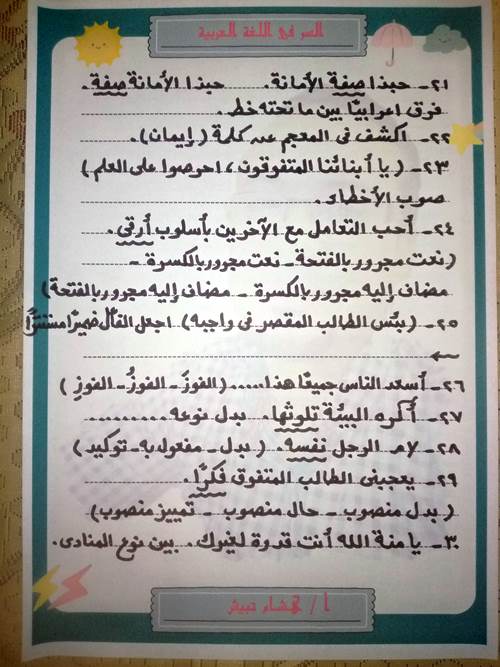 السر فى اللغة العربية
٢١- حبذا صفة الأمانة. حبذا الأمانة صفة.
فرق اعرابيًا بين ما تحته خط.
٢٢- اكشف فى المعجم عن كلمة (إيمان).
٢٣- (يا أبنائنا المتفوقون، احرصوا على العلم)
صوب الأخطاء.
٢٤- أحب التعامل مع الآخرين بأسلوب أرقى.
(نعت مجرور بالفتحة - نعت مجرور بالكسرة -
مضاف إليه مجرور بالكسرة - مضاف إليه مجرور بالفتحة)
٢٥- (بئس الطالب المقصر فى واجبه) اجعل الفاعل ضميرًا مستترًا
٢٦- أسعد الناس جميعًا هذا..... (الفوزَ - الفوزُ - الفوزِ)
٢٧- أكره البيئة تلوثها. بدل نوعه.........
٢٨- لام الرجل نفسه. (بدل - مفعول به - توكيد)
٢٩- يعجبنى الطالب المتفوق فكرًا.
(بدل منصوب - حال منصوب - تمييز منصوب)
٣٠- يا منة الله أنت قدوة لغيرك. بين نوع المنادى.
أ /